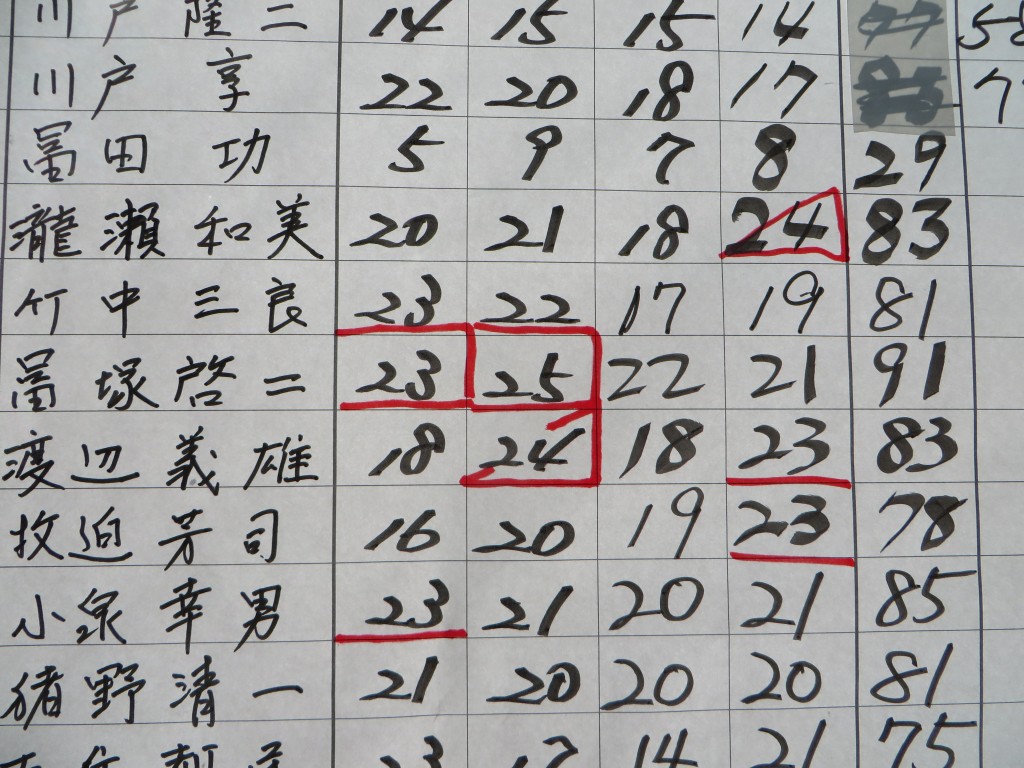 川戸隆二 14 15 15 14 58
川戸享 22 20 18 17
冨田功 5 9 7 8 29
瀧瀬和美 20 21 18 24 83
竹中三良 23 22 17 19 81
冨塚啓二 23 25 22 21 91
渡辺義雄 18 24 18 23 83
牧迫芳司 16 20 19 23 78
小泉幸男 23 21 20 21 85
猪野清一 21 20 20 20 81
23 17 14 21 75